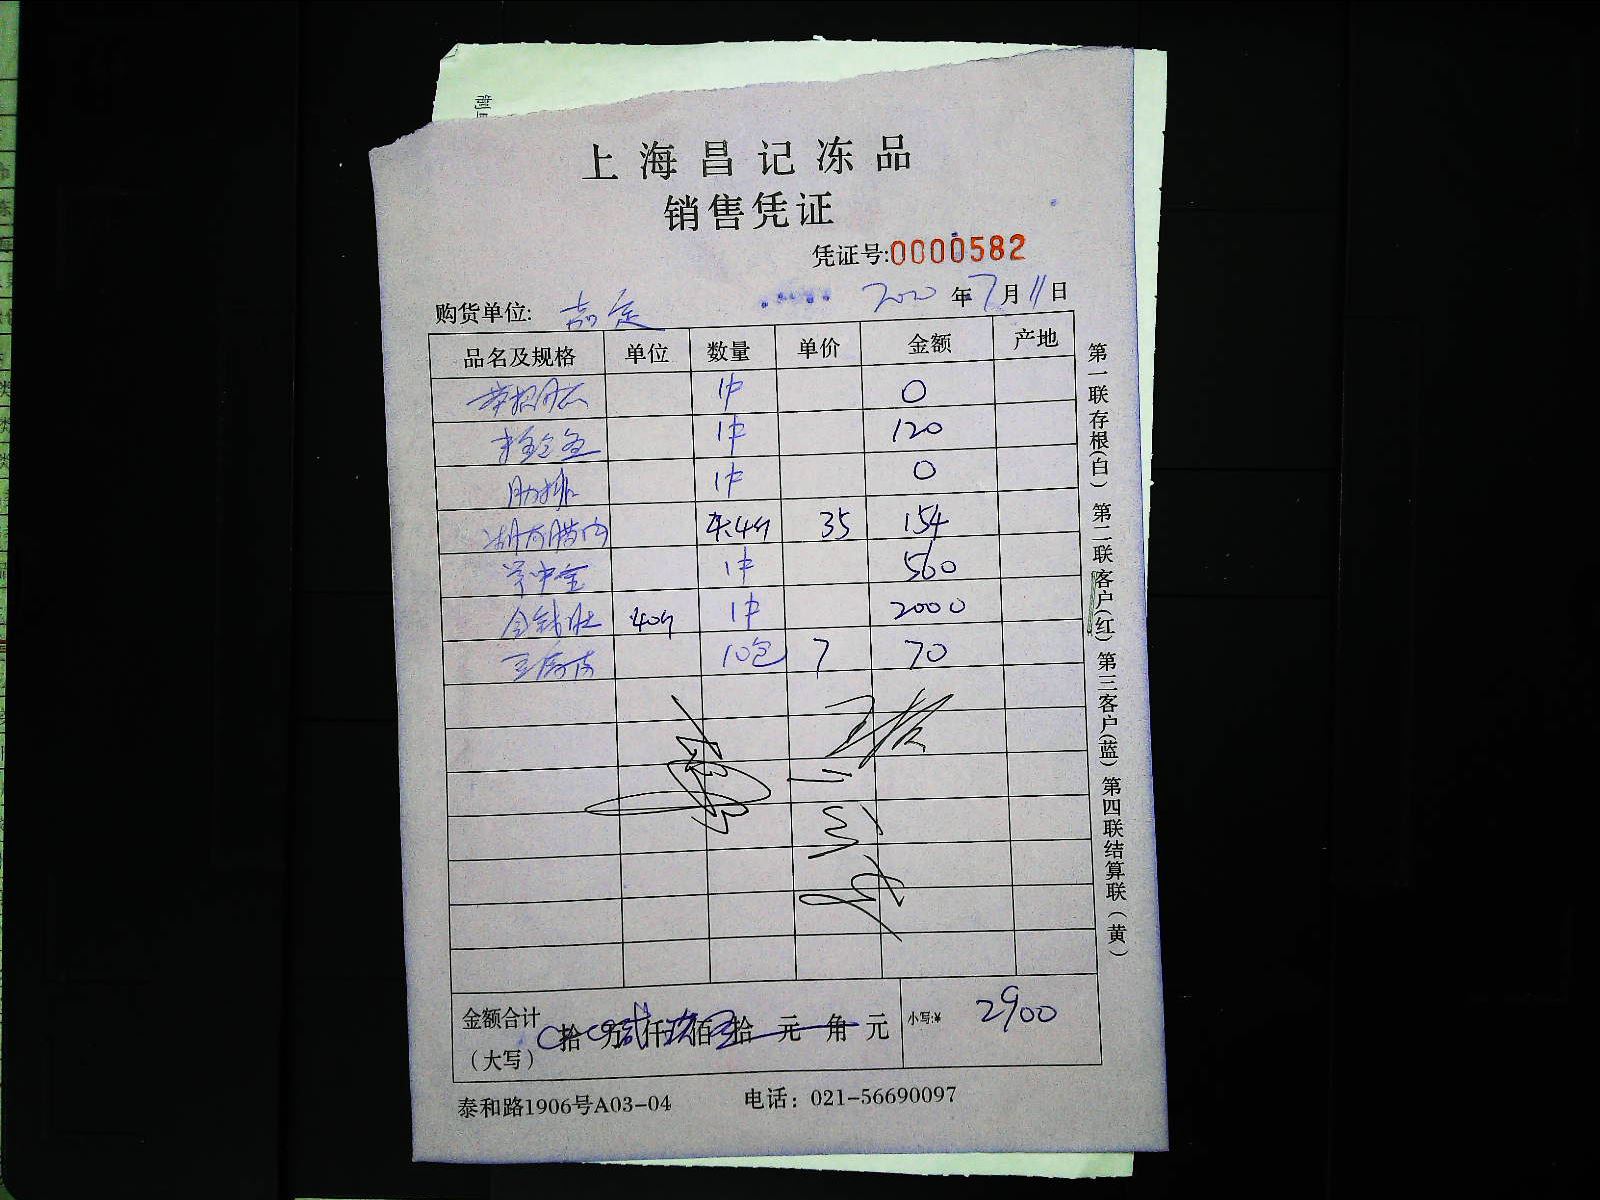 上海昌记冻品
销售凭证
凭证号:0000582
购货单位: 嘉定 2020年7月11日
品名及规格 单位 数量 单价 金额 产地
1件 0
1件 120
肋排 1件 0
湖南腊肉 4.4斤 35 154
1件 560
金钱肚 40斤 1件 2000
豆腐皮 10包 7 70
金额合计
(大写) 拾 万贰仟玖佰 拾 元 角 元 小写:¥ 2900
泰和路1906号A03-04 电话: 021-56690097
第一联存根(白) 第二联客户(红) 第三客户(蓝) 第四联结算联(黄)